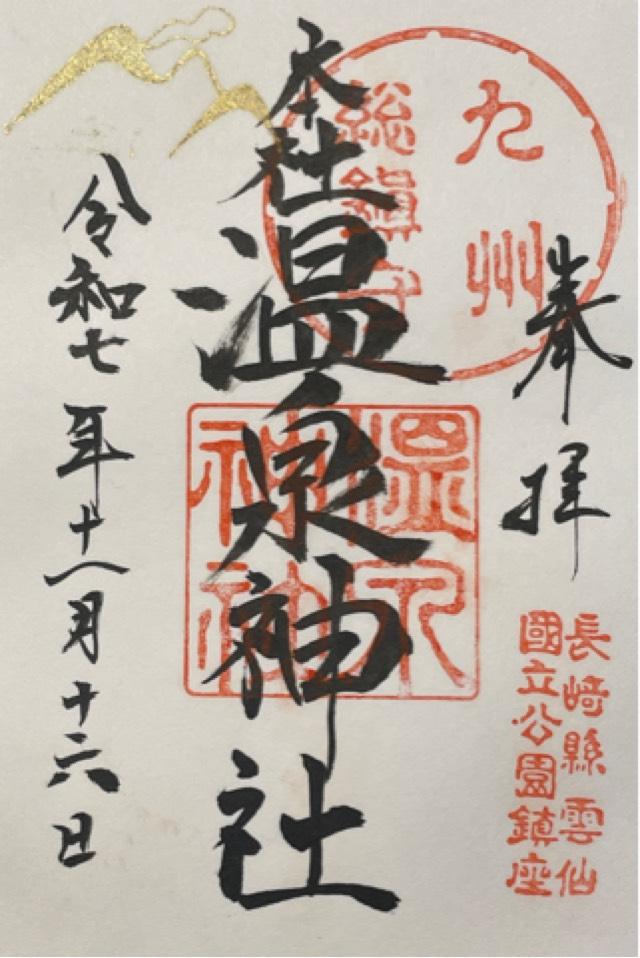 奉拝
九州
総鎮守
長崎縣雲仙
國立公園鎮座
本社温泉神社
温泉
神社
令和七年十一月十六日